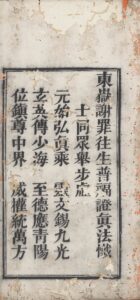 東嶽謝罪往生普福證眞法懺
士同眾舉步虛
元始弘眞乘　雲文錫九光
玄英傳少海　至德應青陽
位鎮尊中界　威權統萬方